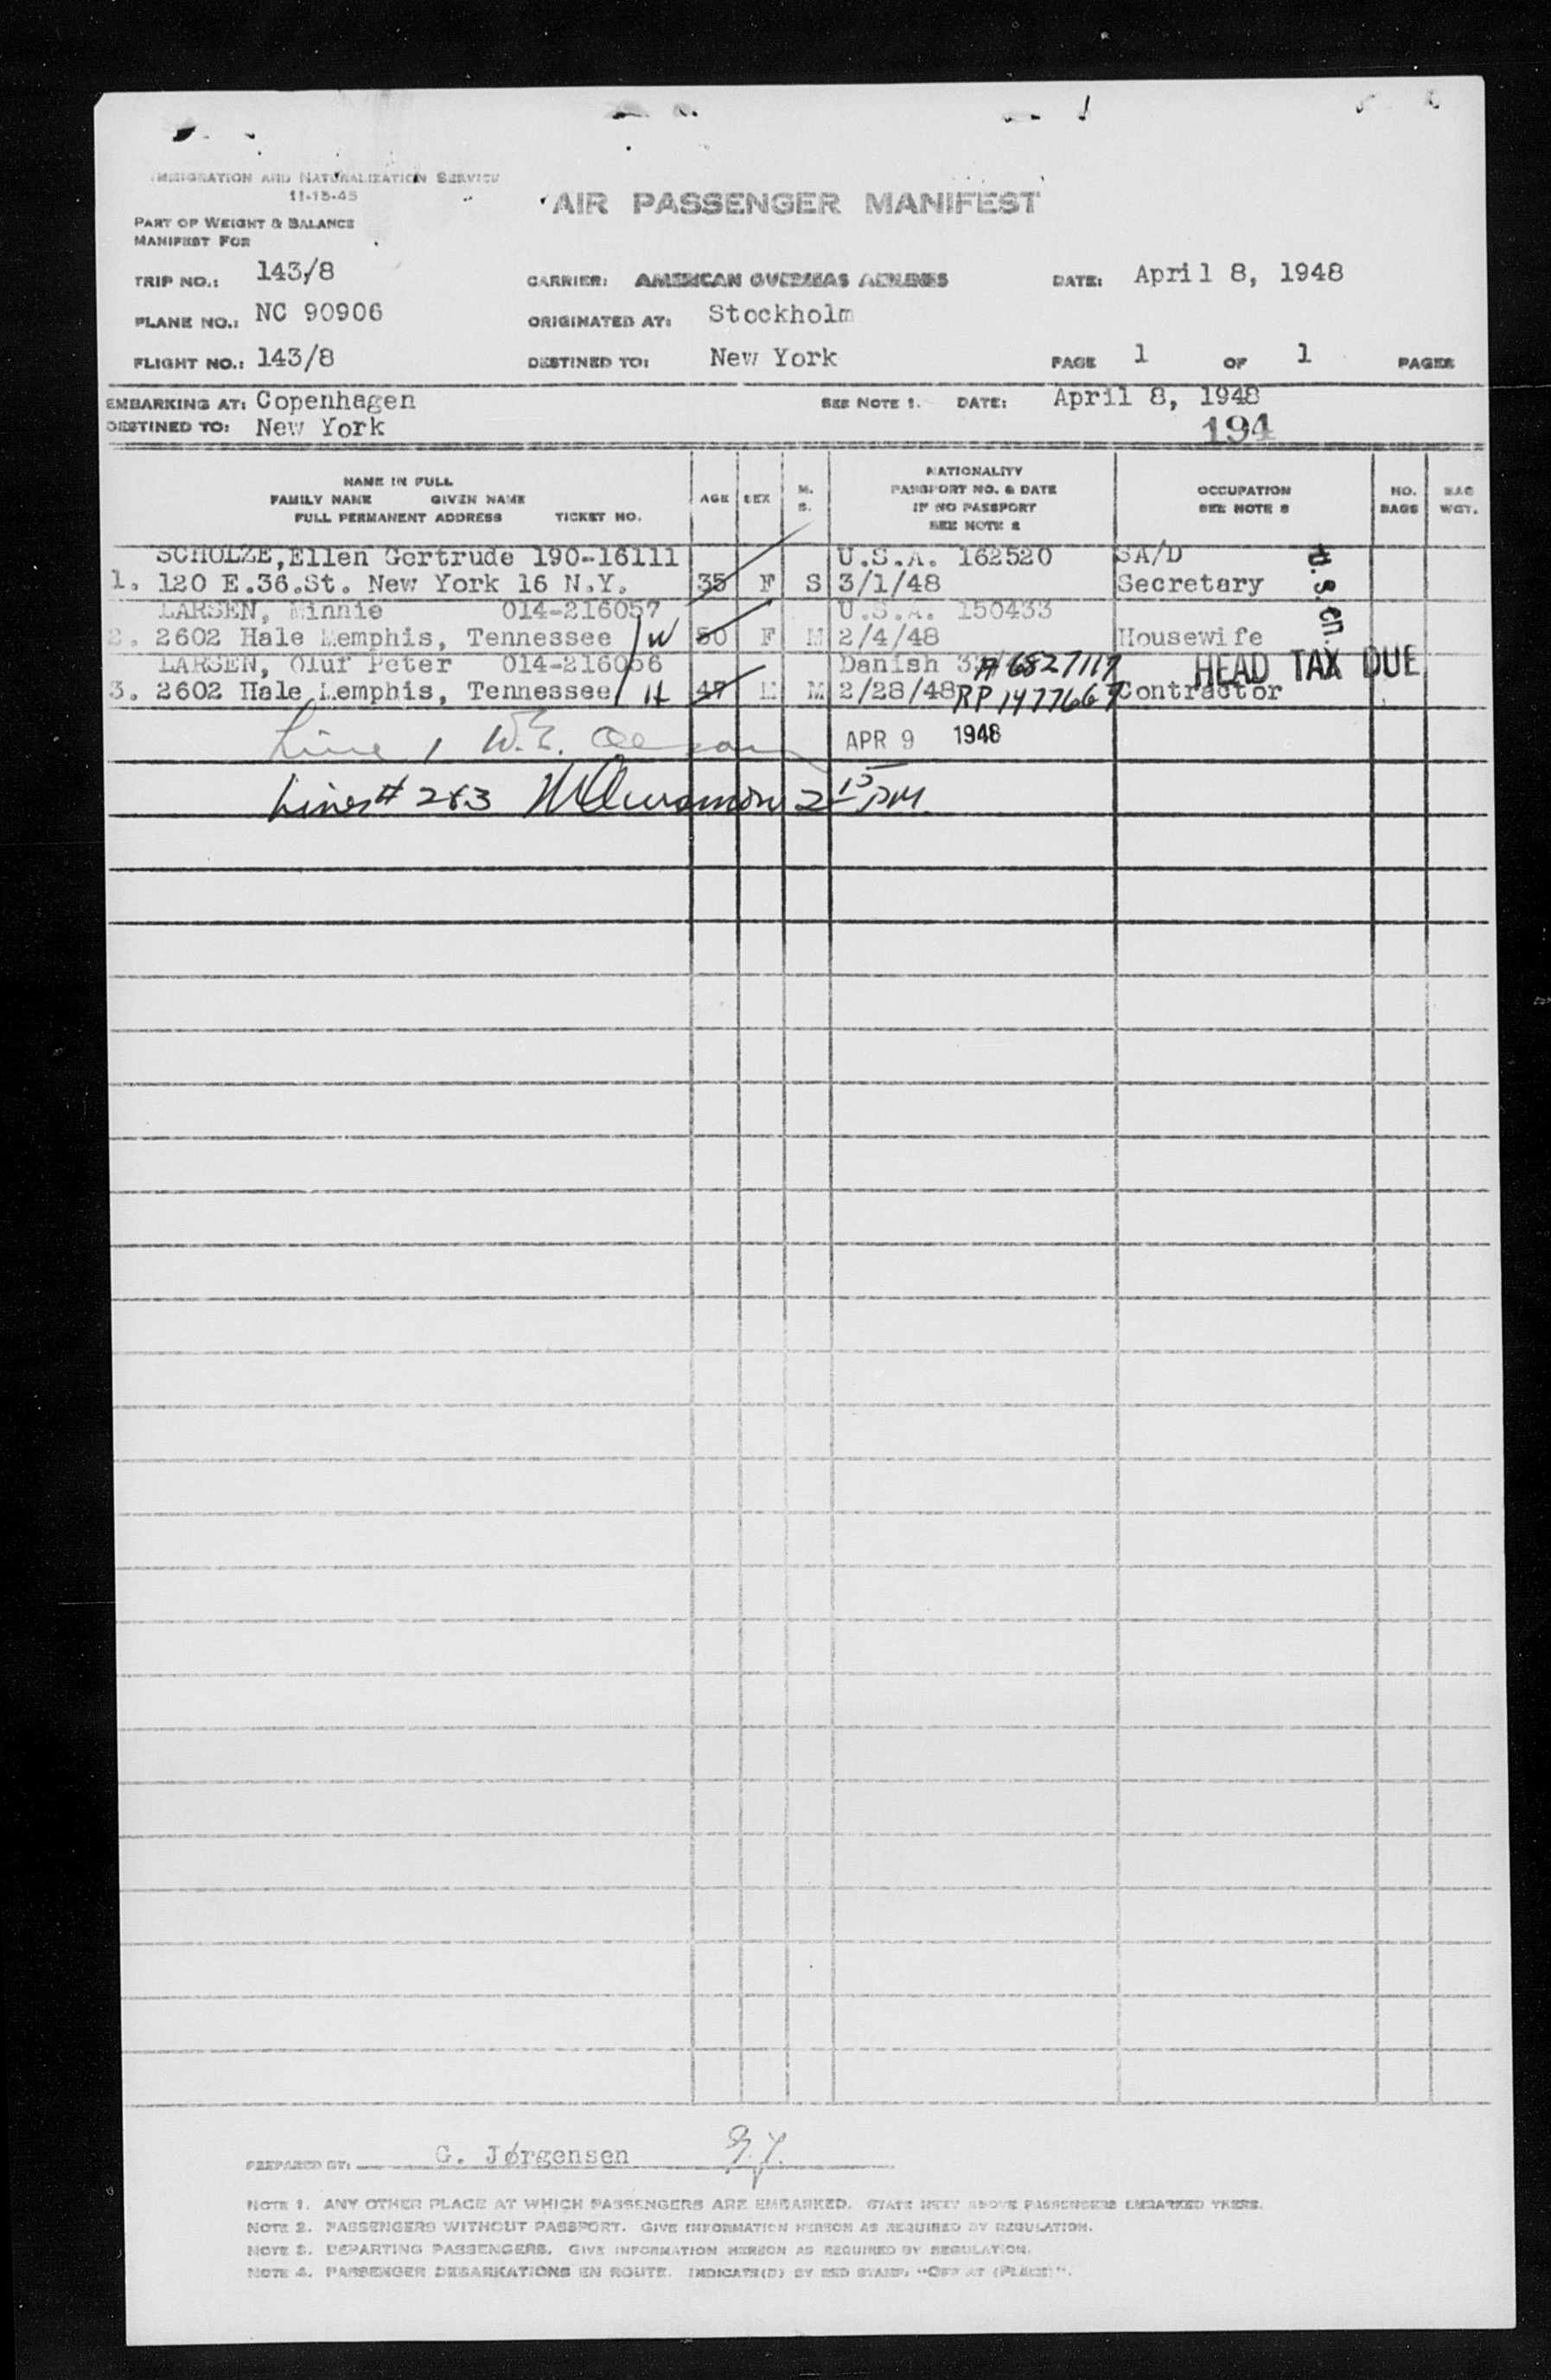 IMMIGRATION AND NATURALIZATION SERVICE
11-15-45
AIR PASSENGER MANIFEST
PART OF WEIGHT & BALANCE
MANIFEST FOR
TRIP NO.: 143/8 CARRIER: AMERICAN OVERSEAS AIRLINES DATE: April 8, 1948
PLANE NO.: NC 90906 ORIGINATED AT: Stockholm
FLIGHT NO.: 143/8 DESTINED TO: New York PAGE 1 OF 1 PAGES
EMBARKING AT: Copenhagen SEE NOTE 1. DATE: April 8, 1948
DESTINED TO: New York 194
NAME IN FULL
FAMILY NAME GIVEN NAME
FULL PERMANENT ADDRESS TICKET NO.
AGE SEX M. S.
NATIONALITY
PASSPORT NO. & DATE
IF NO PASSPORT
SEE NOTE 2
OCCUPATION
SEE NOTE 3
NO. BAGS
BAG WGT.
SCHOLZE, Ellen Gertrude 190-16111 U.S.A. 162520 SA/D
1. 120 E.36.St. New York 16 N.Y. 35 F S 3/1/48 Secretary
LARSEN, Minnie 014-216057 U.S.A. 150433
2. 2602 Hale Memphis, Tennessee /W 50 F M 2/4/48 Housewife
U.S. cn.
LARSEN, Oluf Peter 014-216056 Danish A 6827117 HEAD TAX DUE
3. 2602 Hale Memphis, Tennessee / H 47 M M 2/28/48 RP 1477667 Contractor
Line 1 W.E. APR 9 1948
Lines # 2&3 2 15 PM.
PREPARED BY: G. Jørgensen G.J.
NOTE 1. ANY OTHER PLACE AT WHICH PASSENGERS ARE EMBARKED. STATE NEXT ABOVE PASSENGERS EMBARKED THERE.
NOTE 2. PASSENGERS WITHOUT PASSPORT. GIVE INFORMATION HEREON AS REQUIRED BY REGULATION.
NOTE 3. DEPARTING PASSENGERS. GIVE INFORMATION HEREON AS REQUIRED BY REGULATION.
NOTE 4. PASSENGER DEBARKATIONS EN ROUTE. INDICATE(D) BY RED STAMP: "OFF AT (PLACE)".